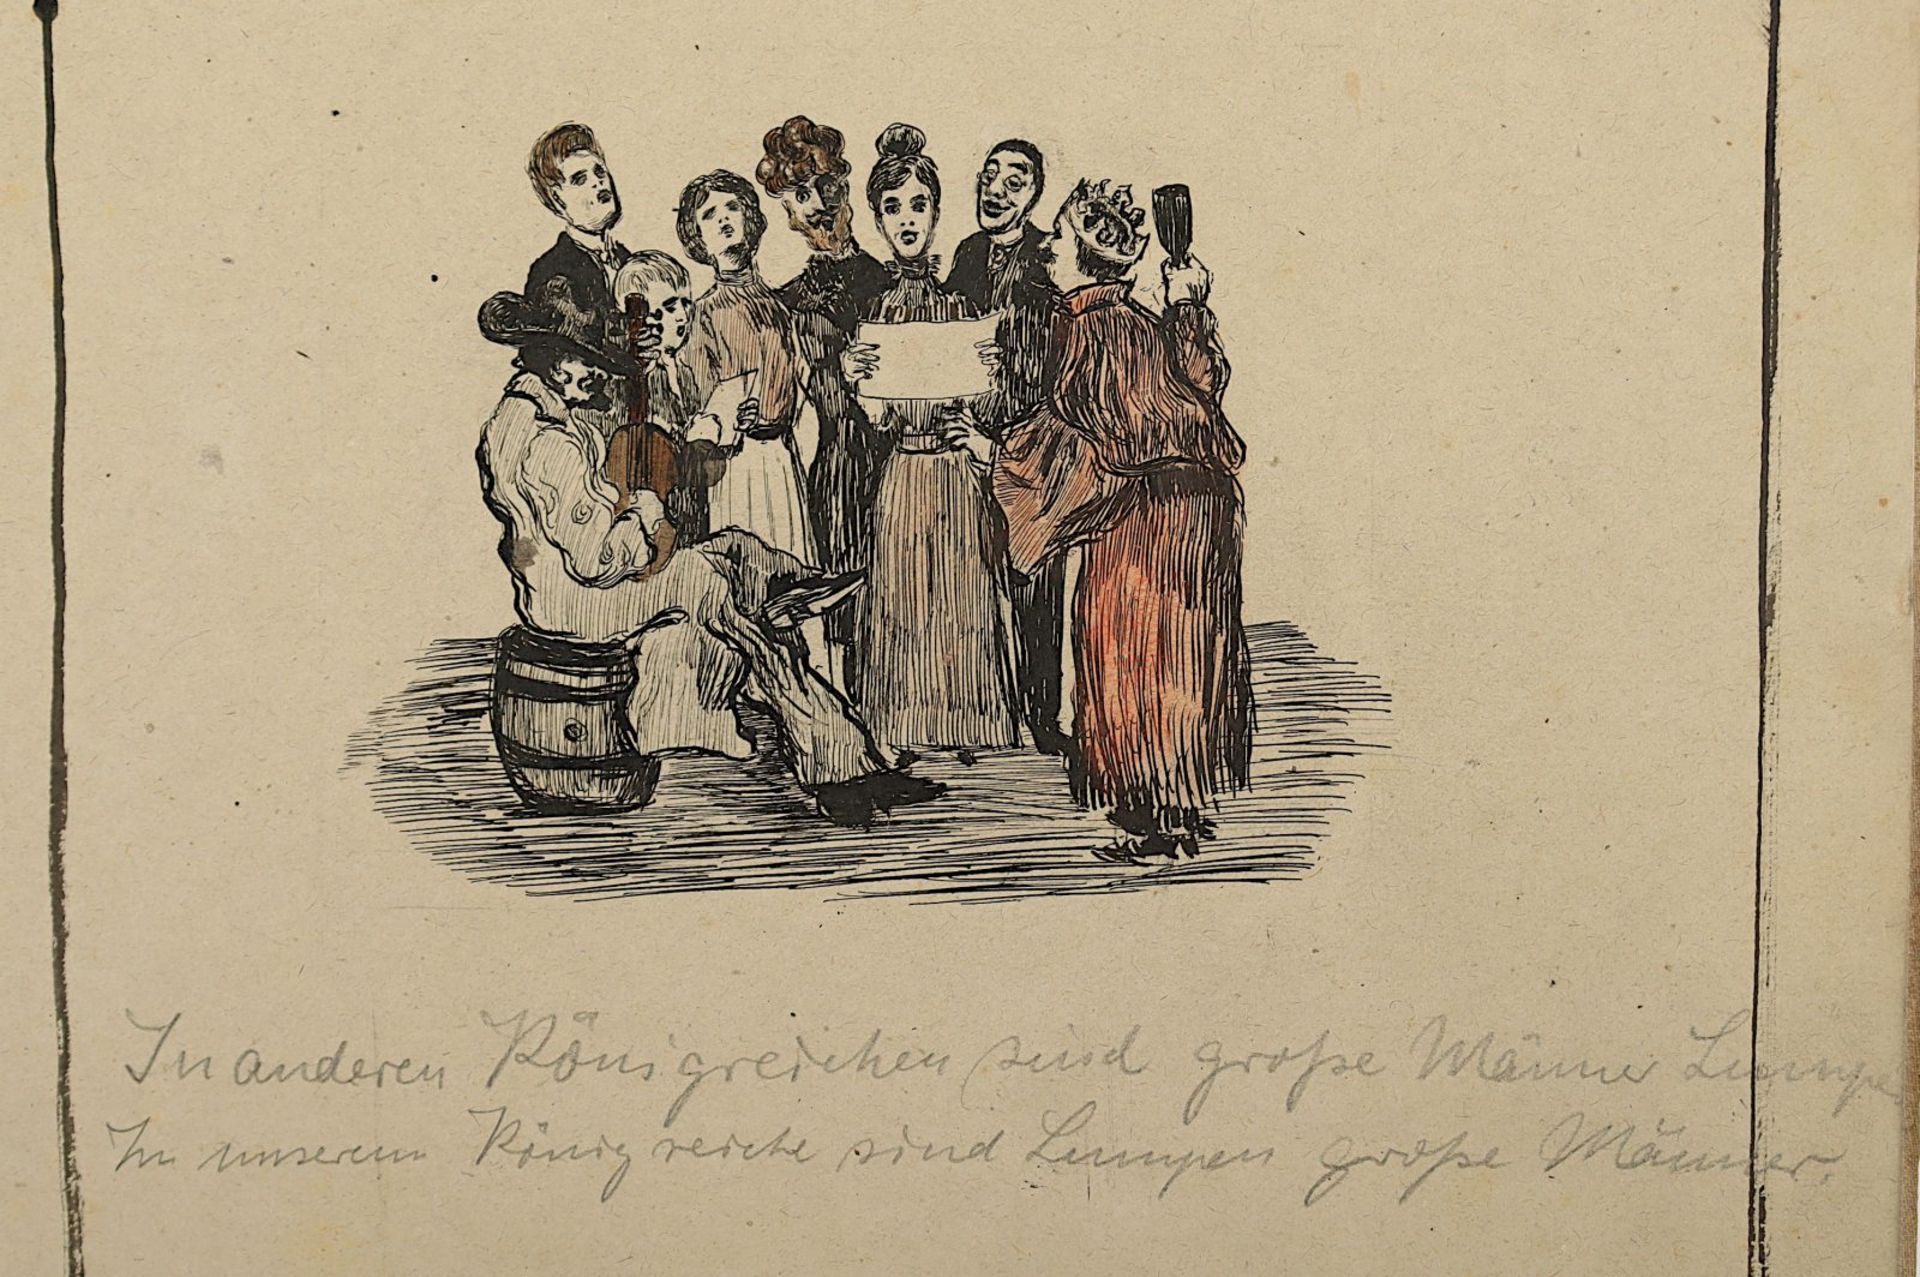 In anderen Königreichen sind große Männer Lumpen
In unserem Königreiche sind Lumpen große Männer.